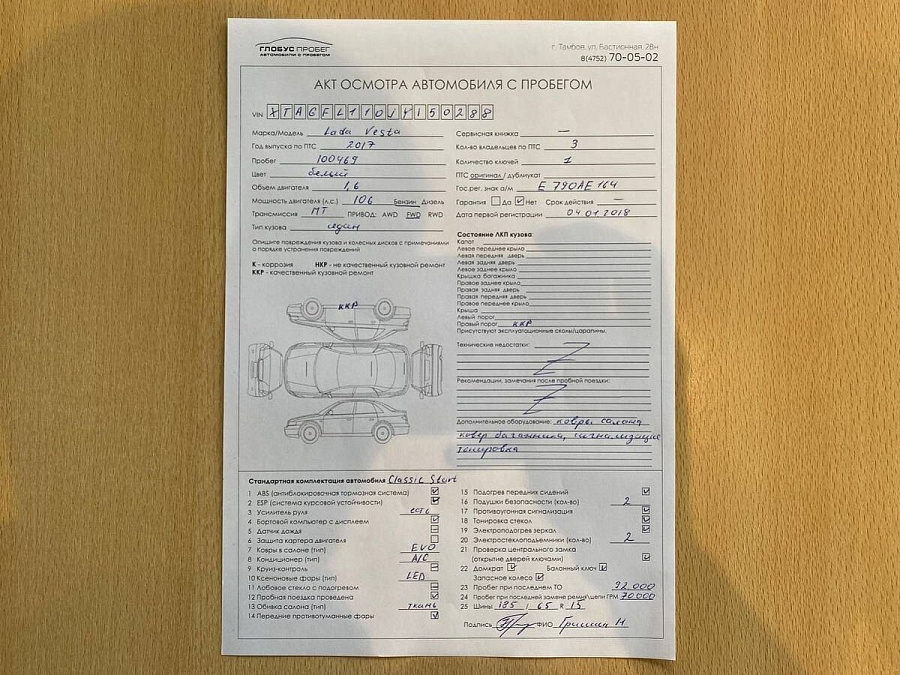 ГЛОБУС ПРОБЕГ
АВТОМОБИЛИ С ПРОБЕГОМ
г. Тамбов, ул. Бастионная, 28н
8(4752) 70-05-02
АКТ ОСМОТРА АВТОМОБИЛЯ С ПРОБЕГОМ
VIN XTAGFL110JY150288
Марка/Модель Lada Vesta
Год выпуска по ПТС 2017
Пробег 100469
Цвет белый
Объем двигателя 1,6
Мощность двигателя (л.с.) 106 Бензин Дизель
Трансмиссия МТ ПРИВОД: AWD FWD RWD
Тип кузова седан
Сервисная книжка —
Кол-во владельцев по ПТС 3
Количество ключей 1
ПТС оригинал / дубликат
Гос.рег. знак а/м Е 790АЕ 164
Гарантия Да Нет Срок действия —
Дата первой регистрации 04 01 2018
Опишите повреждения кузова и колесных дисков с примечаниями
о порядке устранения повреждений
К - коррозия НКР - не качественный кузовной ремонт
ККР - качественный кузовной ремонт
ККР
Состояние ЛКП кузова:
Капот
Левое переднее крыло
Левая передняя дверь
Левая задняя дверь
Левое заднее крыло
Крышка багажника
Правое заднее крыло
Правая задняя дверь
Правая передняя дверь
Правое переднее крыло
Крыша
Левый порог
Правый порог ККР
Присутствуют эксплуатационные сколы/царапины.
Технические недостатки:
Рекомендации, замечания после пробной поездки:
Дополнительное оборудование: ковры салона
ковер багажника, сигнализация
тонировка
Стандартная комплектация автомобиля Classic Start
1 ABS (антиблокировочная тормозная система)
2 ESP (система курсовой устойчивости)
3 Усилитель руля есть
4 Бортовой компьютер с дисплеем
5 Датчик дождя
6 Защита картера двигателя
7 Ковры в салоне (тип) EVO
8 Кондиционер (тип) A/C
9 Круиз-контроль
10 Ксеноновые фары (тип) LED
11 Лобовое стекло с подогревом
12 Пробная поездка проведена
13 Обивка салона (тип) ткань
14 Передние противотуманные фары
15 Подогрев передних сидений
16 Подушки безопасности (кол-во) 2
17 Противоугонная сигнализация
18 Тонировка стекол
19 Электроподогрев зеркал
20 Электростеклоподъемники (кол-во) 2
21 Проверка центрального замка
(открытие дверей ключами)
22 Домкрат Балонный ключ
Запасное колесо
23 Пробег при последнем ТО 92 000
24 Пробег при последней замене ремня/цепи ГРМ 70 000
25 Шины 185 / 65 R 15
Подпись ФИО Гришин Н